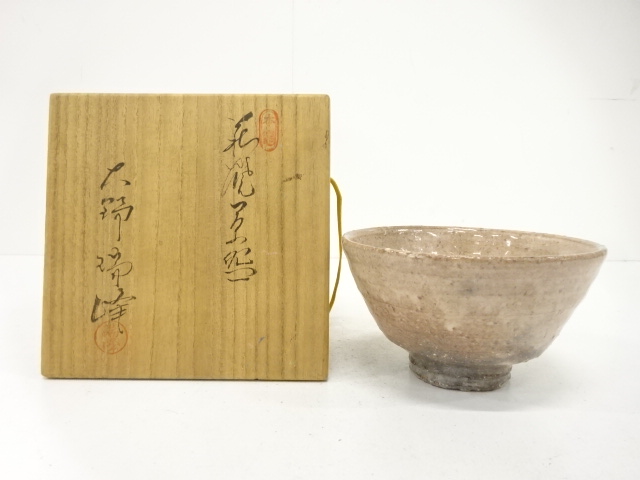 萩焼茶碗
大野瑞峰